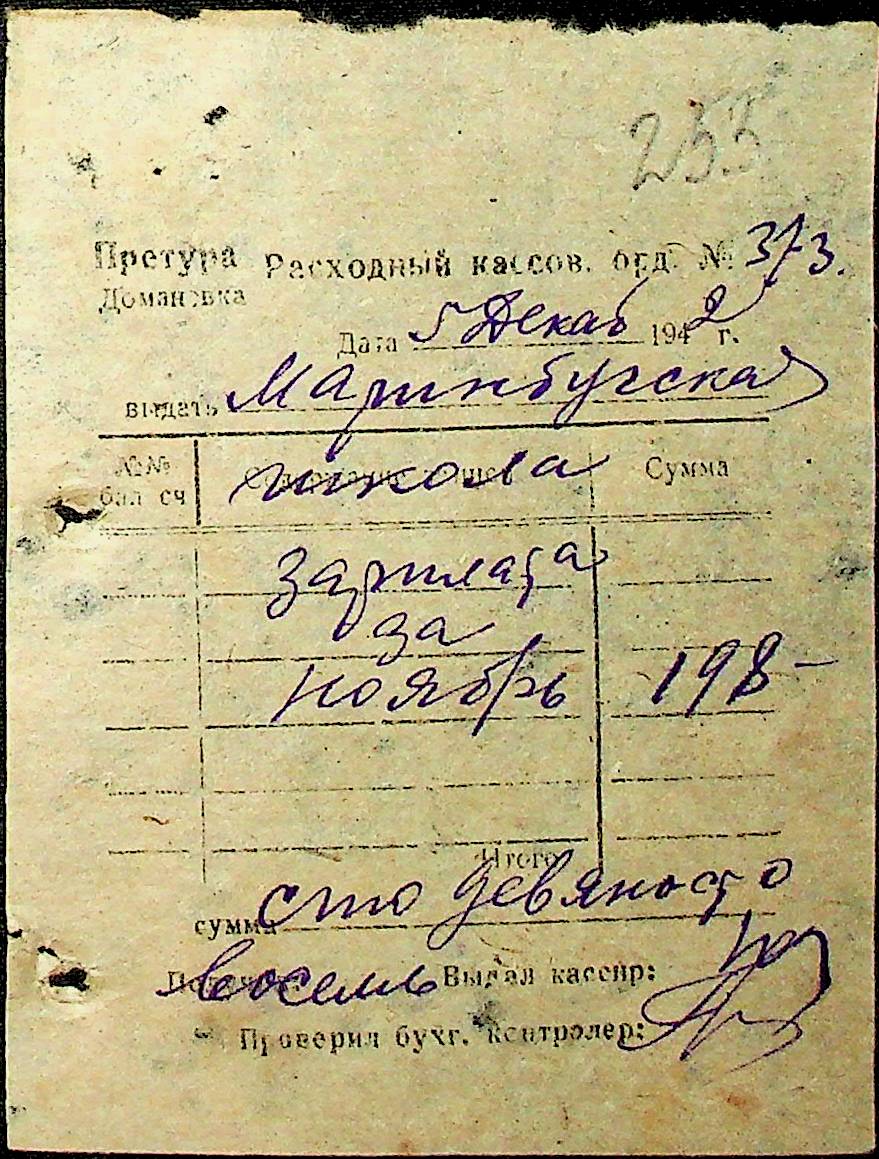 255
Претура Расходный кассов. орд. № 373.
Домановка
Дата 5 Декаб 1942 г.
выдать Маринбургская
№№ бал сч школа Сумма
зарплата
за
ноябрь 198-
Итого
сумма сто девяносто
восемь Выдал кассир:
Проверил бухг. контролер: